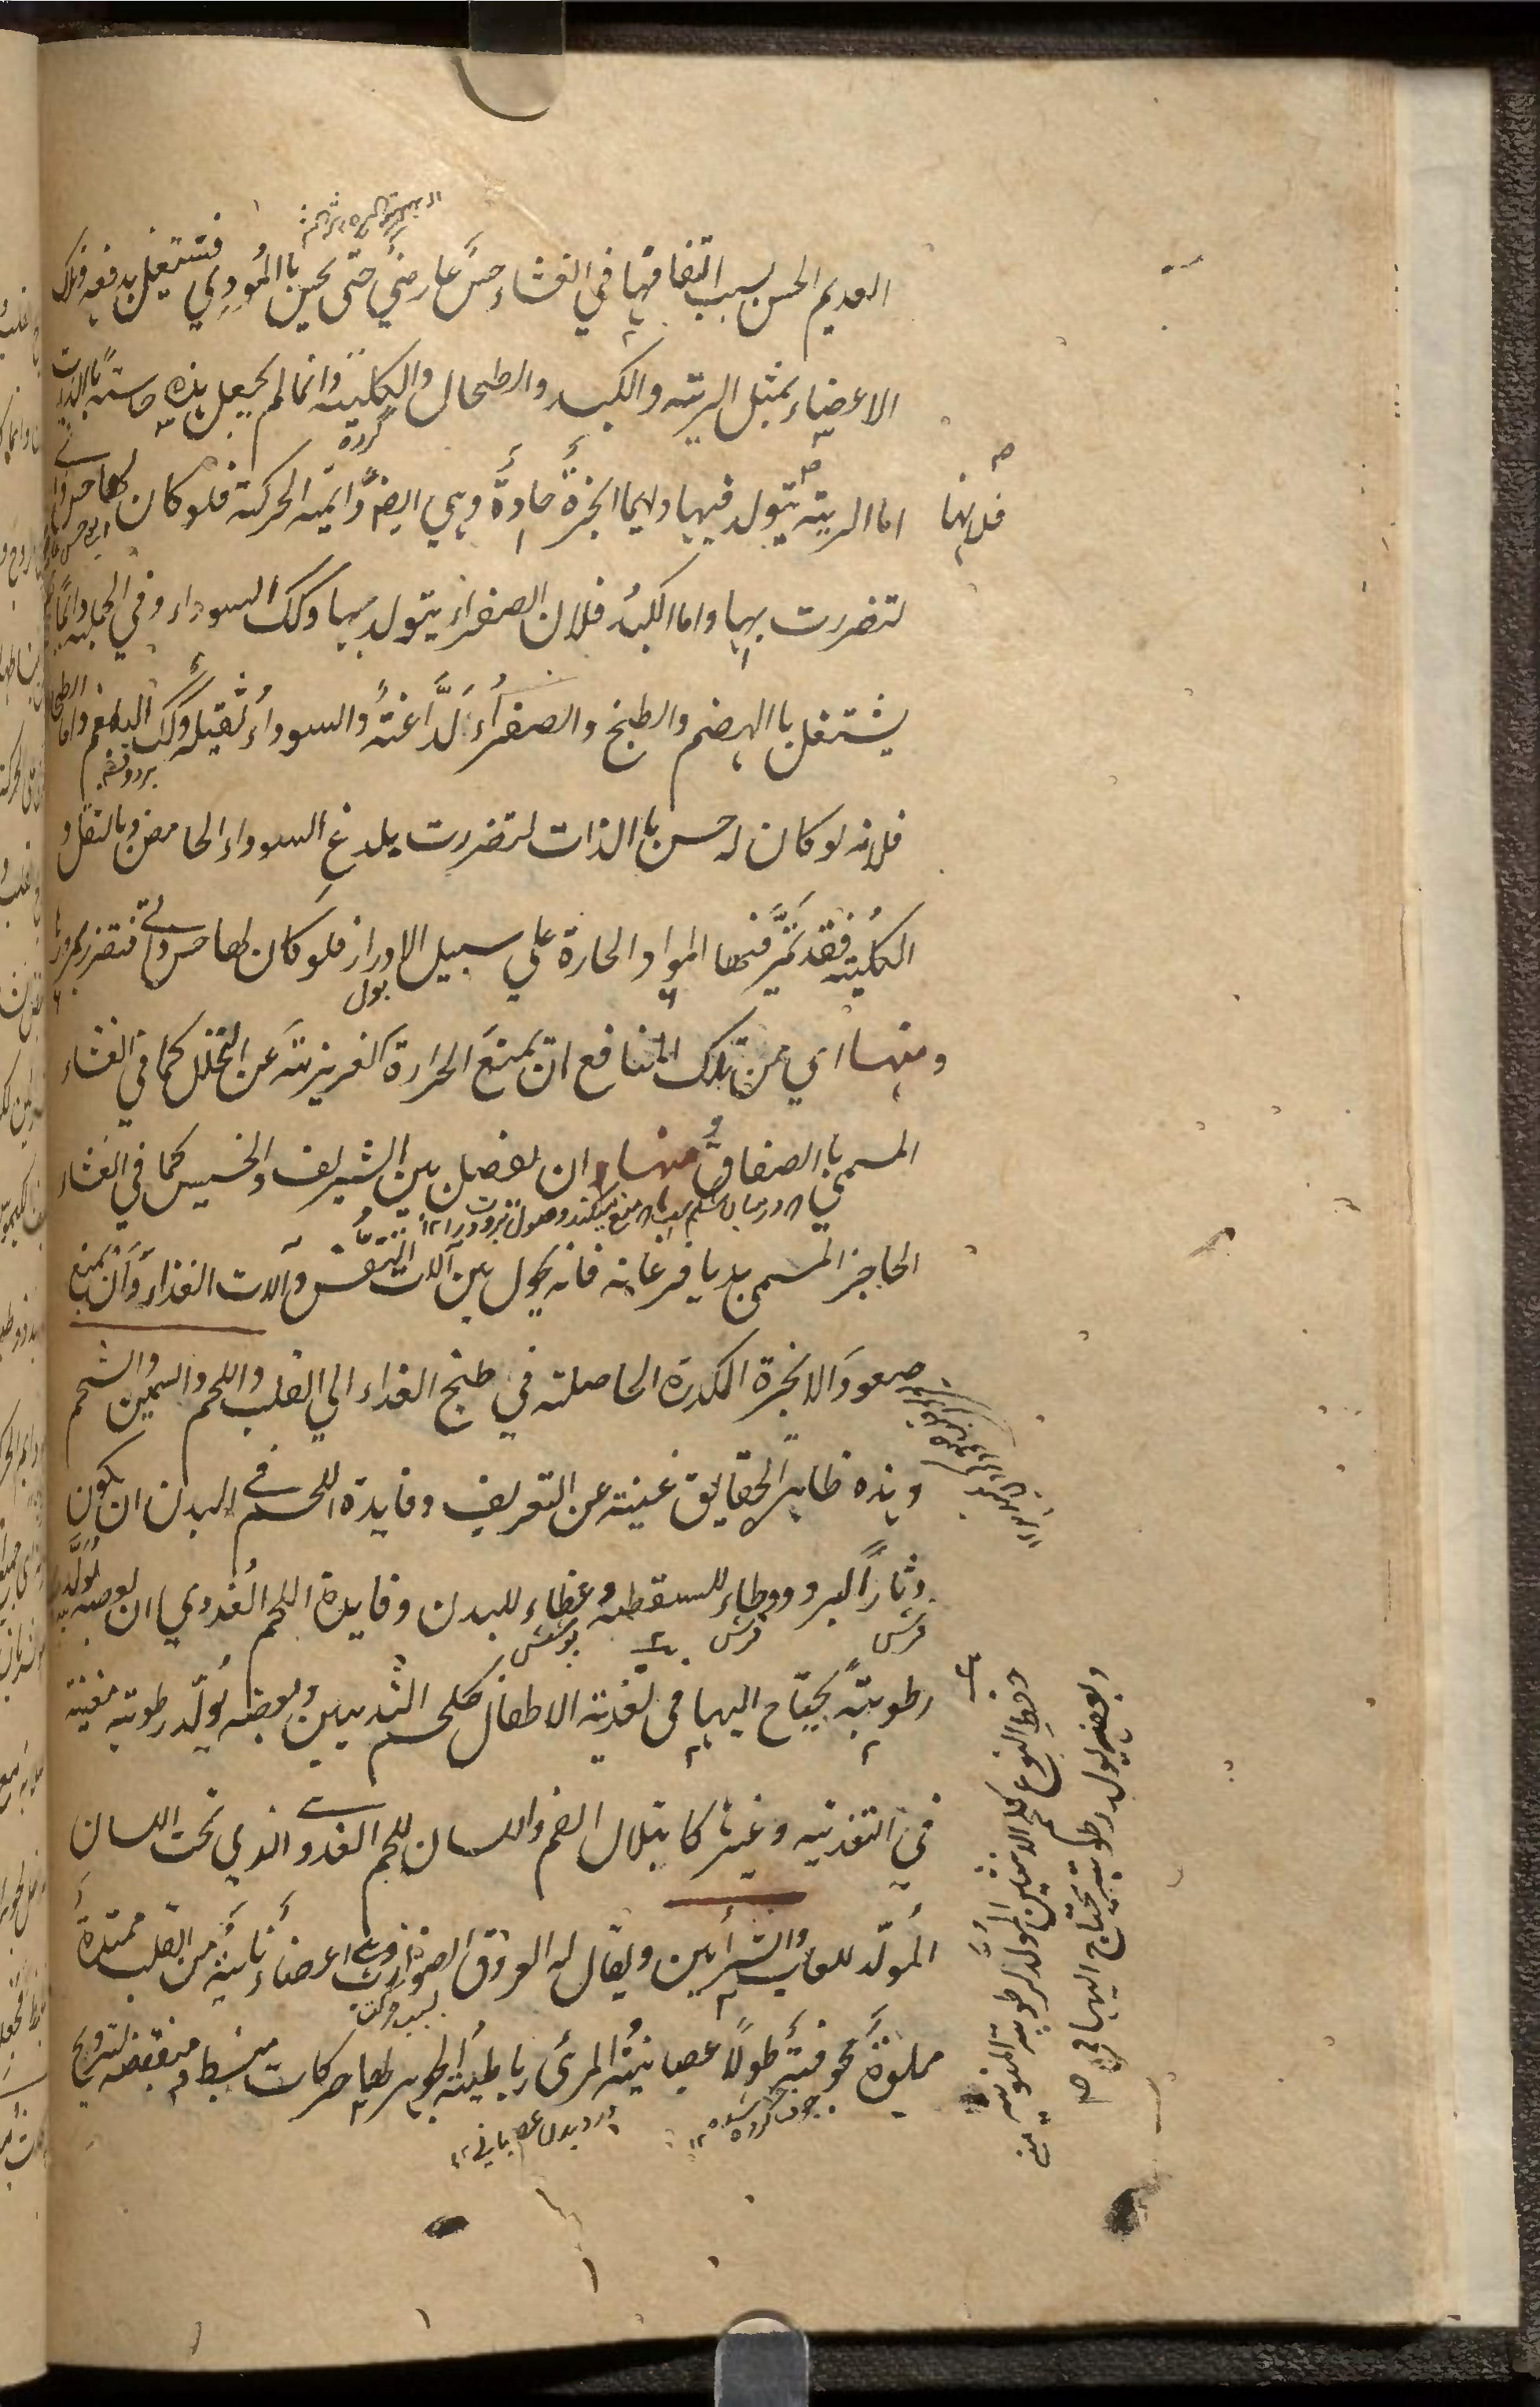 العديم الحس بسبب التفافها في الغشاء حسٌ عارضيٌ حتى يحس باالموذي فتشتغل بدفعه وتلك
الاعضاء بمثل الرية والكبد والطحال والكلية وانما لم يجعل هذه حاسة بالذات
گرده
اما الرية فلانها يتولد فيها دايما ابخرةٌ حادةٌ وهي ايضا دايمة الحركة فلو كان لها حس ذاتي
لتضررت بها واما الكبد فلان الصفراء يتولد بها وكك السوداء وفي الجملة دايما
يشتغل باالهضم والطبخ والصفراء لذّاعة والسوداء ثقيلة وكك البلغم واما الطحال
فلانه لو كان له حس باالذات لتضررت بلدغ السوداء الحامض وبالثقل و
الكلية فقد تمر فيها المواد الحارة علي سبيل الادرار فلو كان لها حس ذاتي فتضرر بمرورها
بول
ومنها اي من تلك المنافع ان يمنع الحرارة الغريزية عن التحلل كما في الغشاء
المسمي باالصفاق ومنها ان يفصل بين الشريف والخسيس كما في الغشاء
الحاجز المسمى بديافرغمانه فانه يحول بين آلات التنفس وآلات الغذاء وان يمنع
صعود الابخرة المكدرة الحاصلة في طبخ الغذاء الي القلب واللحم والسمين والشحم
وهذه ظاهر الحقايق غنية عن التعريف وفايدة اللحم في البدن ان يكون
دثاراً للبرد ووطاء للسقطة وغطاء للبدن وفايدة اللحم الغددي ان بعضه يولّد
فرش
پوشش
رطوبةً يحتاج اليها في تغذية الاطفال كلحم الثديين وبعضه يولّد رطوبة معينة
في التغذية وغيرها كابتلال الفم واللسان للحم الغددي الذي تحت اللسان
المولّد للعاب والشرايين ويقال له العروق الضوارب وهي اعضاء نابتة من القلب ممتدة
بسبب حركت
مملوة مجوفة طولًا عصبانية المرئ رباطية الجوهر لها حركات منبسط ومنقبضة لترويح
جوف كرده شده ١٢
وبعضه يولد رطوبة يحتاج اليها في
حفظ النوع كلحم الانثيين المولد لرطوبة المنوية